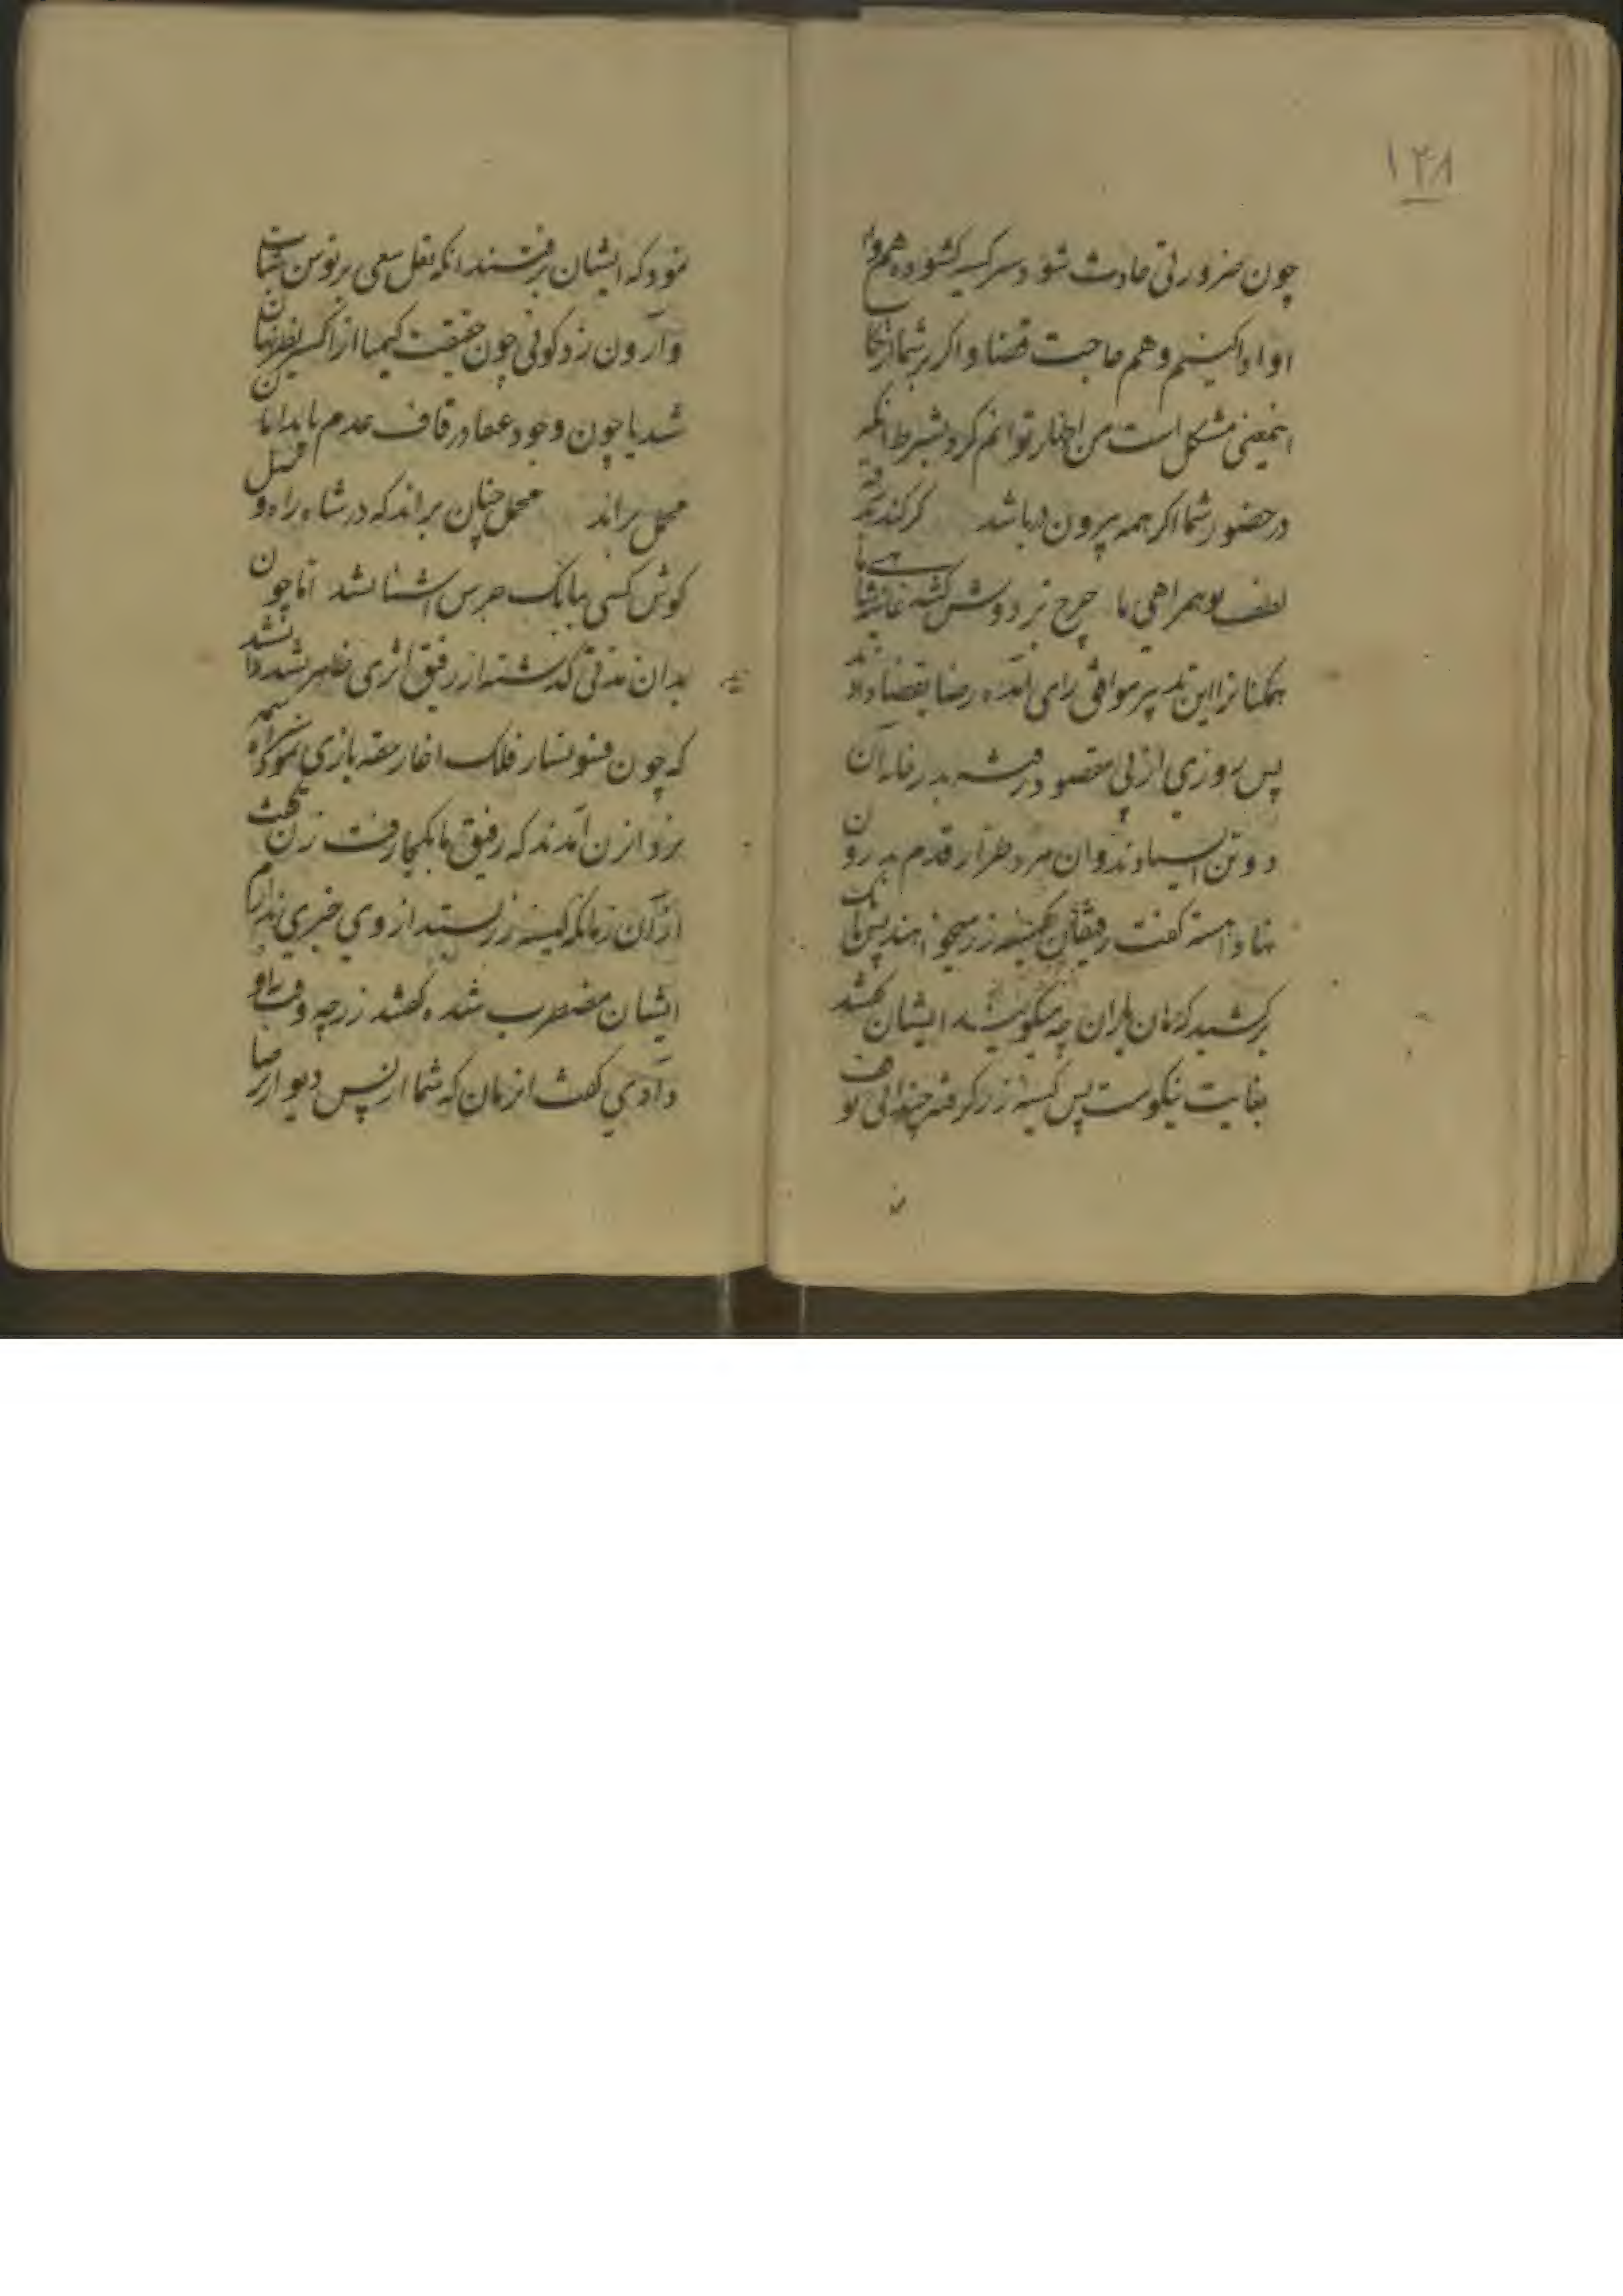 ۱۲۸
چون ضرورتی حادث شود سر کیسه کشوده هم وام
او ادا کنیم و هم حاجت قضا و اکر بر شما ارتکاب
اینمعنی مشکل است من اظهار توانم کرد بشرط انکه
در حضور شما اکر همه بیرون در باشد کر کند بدرقه
لطف تو همراهی ما چرخ بر دوش کشد غاشیه شاهی ما
همکنانرا این تدبیر موافق رای آمده رضا بقضا دادند
پس روزی از پی مقصود رفته بدر خانه آن
دو تن ایستادند و ان مرد طرار قدم بدرون
نهاد و اهسته کفت رفیقان کیسه زر میخواهند پس بانک
برکشید که هان یاران چه میکویید ایشان کفتند
بغایت نیکوست پس کیسه زر کرفته چندانی توقف
نمود که ایشان برفتند انکه نعل سعی بر توسن شتاب
وارون زد کوئی چون حقیقت کیمیا از اکسیر نظر نهان
شد یا چون وجود عنقا در قاف عدم
محمل براند محمل چنان براند که در شاه راه وصل
کوش کسی ببانک جرس اشنا نشد اما چون
بدان مدتی کذشته از رفیق اثری ظاهر نشد دانستند
که چون فسونساز فلک اغاز حقه بازی نموده
نزد ان زن آمدند که رفیق ما بکجا رفت زن کفت
از آن زمانکه کیسه زر بستد از وی خبری ندارم
ایشان مضطرب شده کفتند زر چه وقت باو
دادی کفت انزمان که شما از پس دیوار رضا